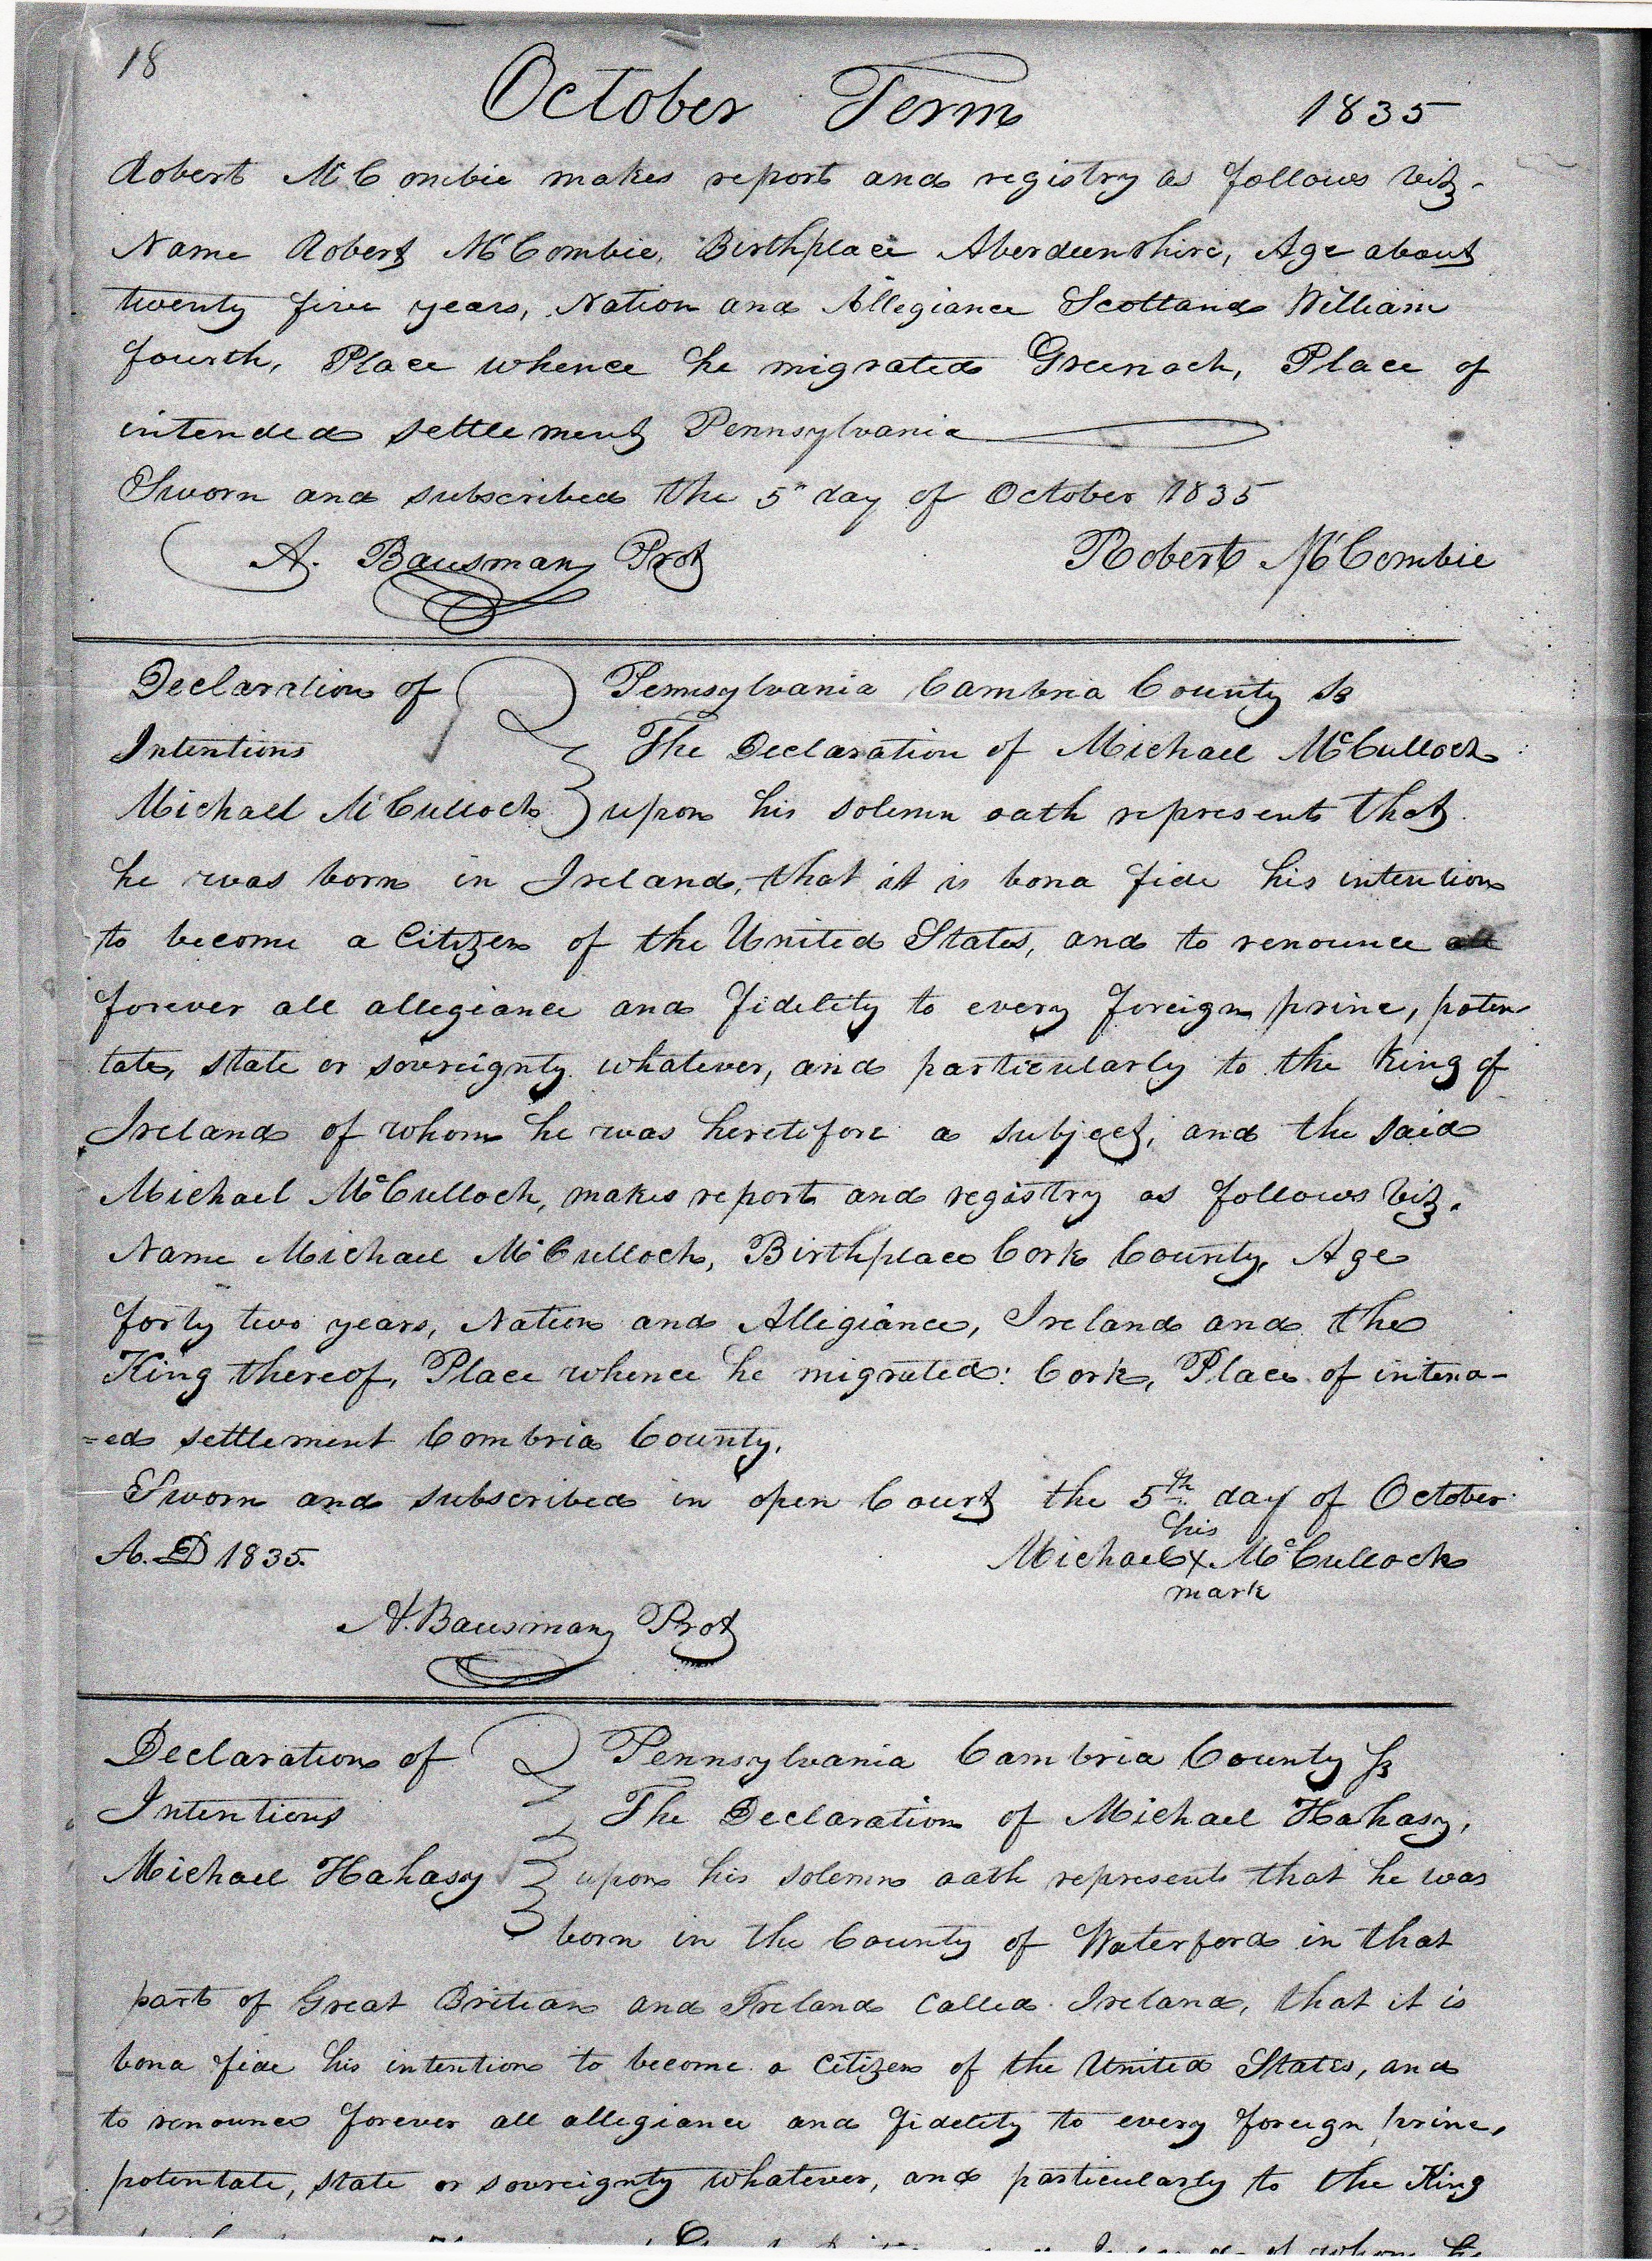 18
October Term 1835
Robert McCombie makes report and registry as follows viz.
Name Robert McCombie, Birthplace Aberdeenshire, Age about
twenty five years, Nation and Allegiance Scotland William
fourth, Place whence he migrated Greenock, Place of
intended settlement Pennsylvania
Sworn and subscribed the 5" day of October 1835
A. Bausman Prot Robert McCombie
Declaration of Pennsylvania Cambria County Ss
Intentions The Declaration of Michael McCulloch
Michael McCulloch upon his solemn oath represents that
he was born in Ireland, that it is bona fide his intention
to become a Citizen of the United States, and to renounce all
forever all allegiance and fidelity to every foreign prince, poten
tate, state or sovereignty whatever, and particularly to the King of
Ireland of whom he was heretofore a subject, and the said
Michael McCulloch, makes report and registry as follows viz.
Name Michael McCulloch, Birthplace Cork County, Age
forty two years, Nation and Allegiance, Ireland and the
King thereof, Place whence he migrated: Cork, Place of intend-
=ed settlement Cambria County.
Sworn and subscribed in open Court the 5th day of October
his
A. D 1835. Michael X McCullock
mark
A. Bausman Prot
Declaration of Pennsylvania Cambria County Ss
Intentions The Declaration of Michael Hahasy,
Michael Hahasy upon his solemn oath represents that he was
born in the County of Waterford in that
part of Great Britian and Ireland called Ireland, that it is
bona fide his intention to become a citizen of the United States, and
to renounce forever all allegiance and fidelity to every foreign prince,
potentate, state or sovreignty whatever, and particularly to the King
of whom he